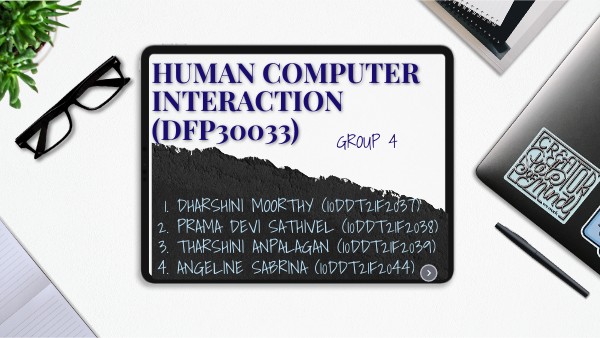 HUMAN COMPUTER
INTERACTION
(DFP30033)
GROUP 4
1. DHARSHINI MOORTHY (10DDT21F2037)
2. PRAMA DEVI SATHIVEL (10DDT21F2038)
3. THARSHINI ANPALAGAN (10DDT21F2039)
4. ANGELINE SABRINA (10DDT21F2044)